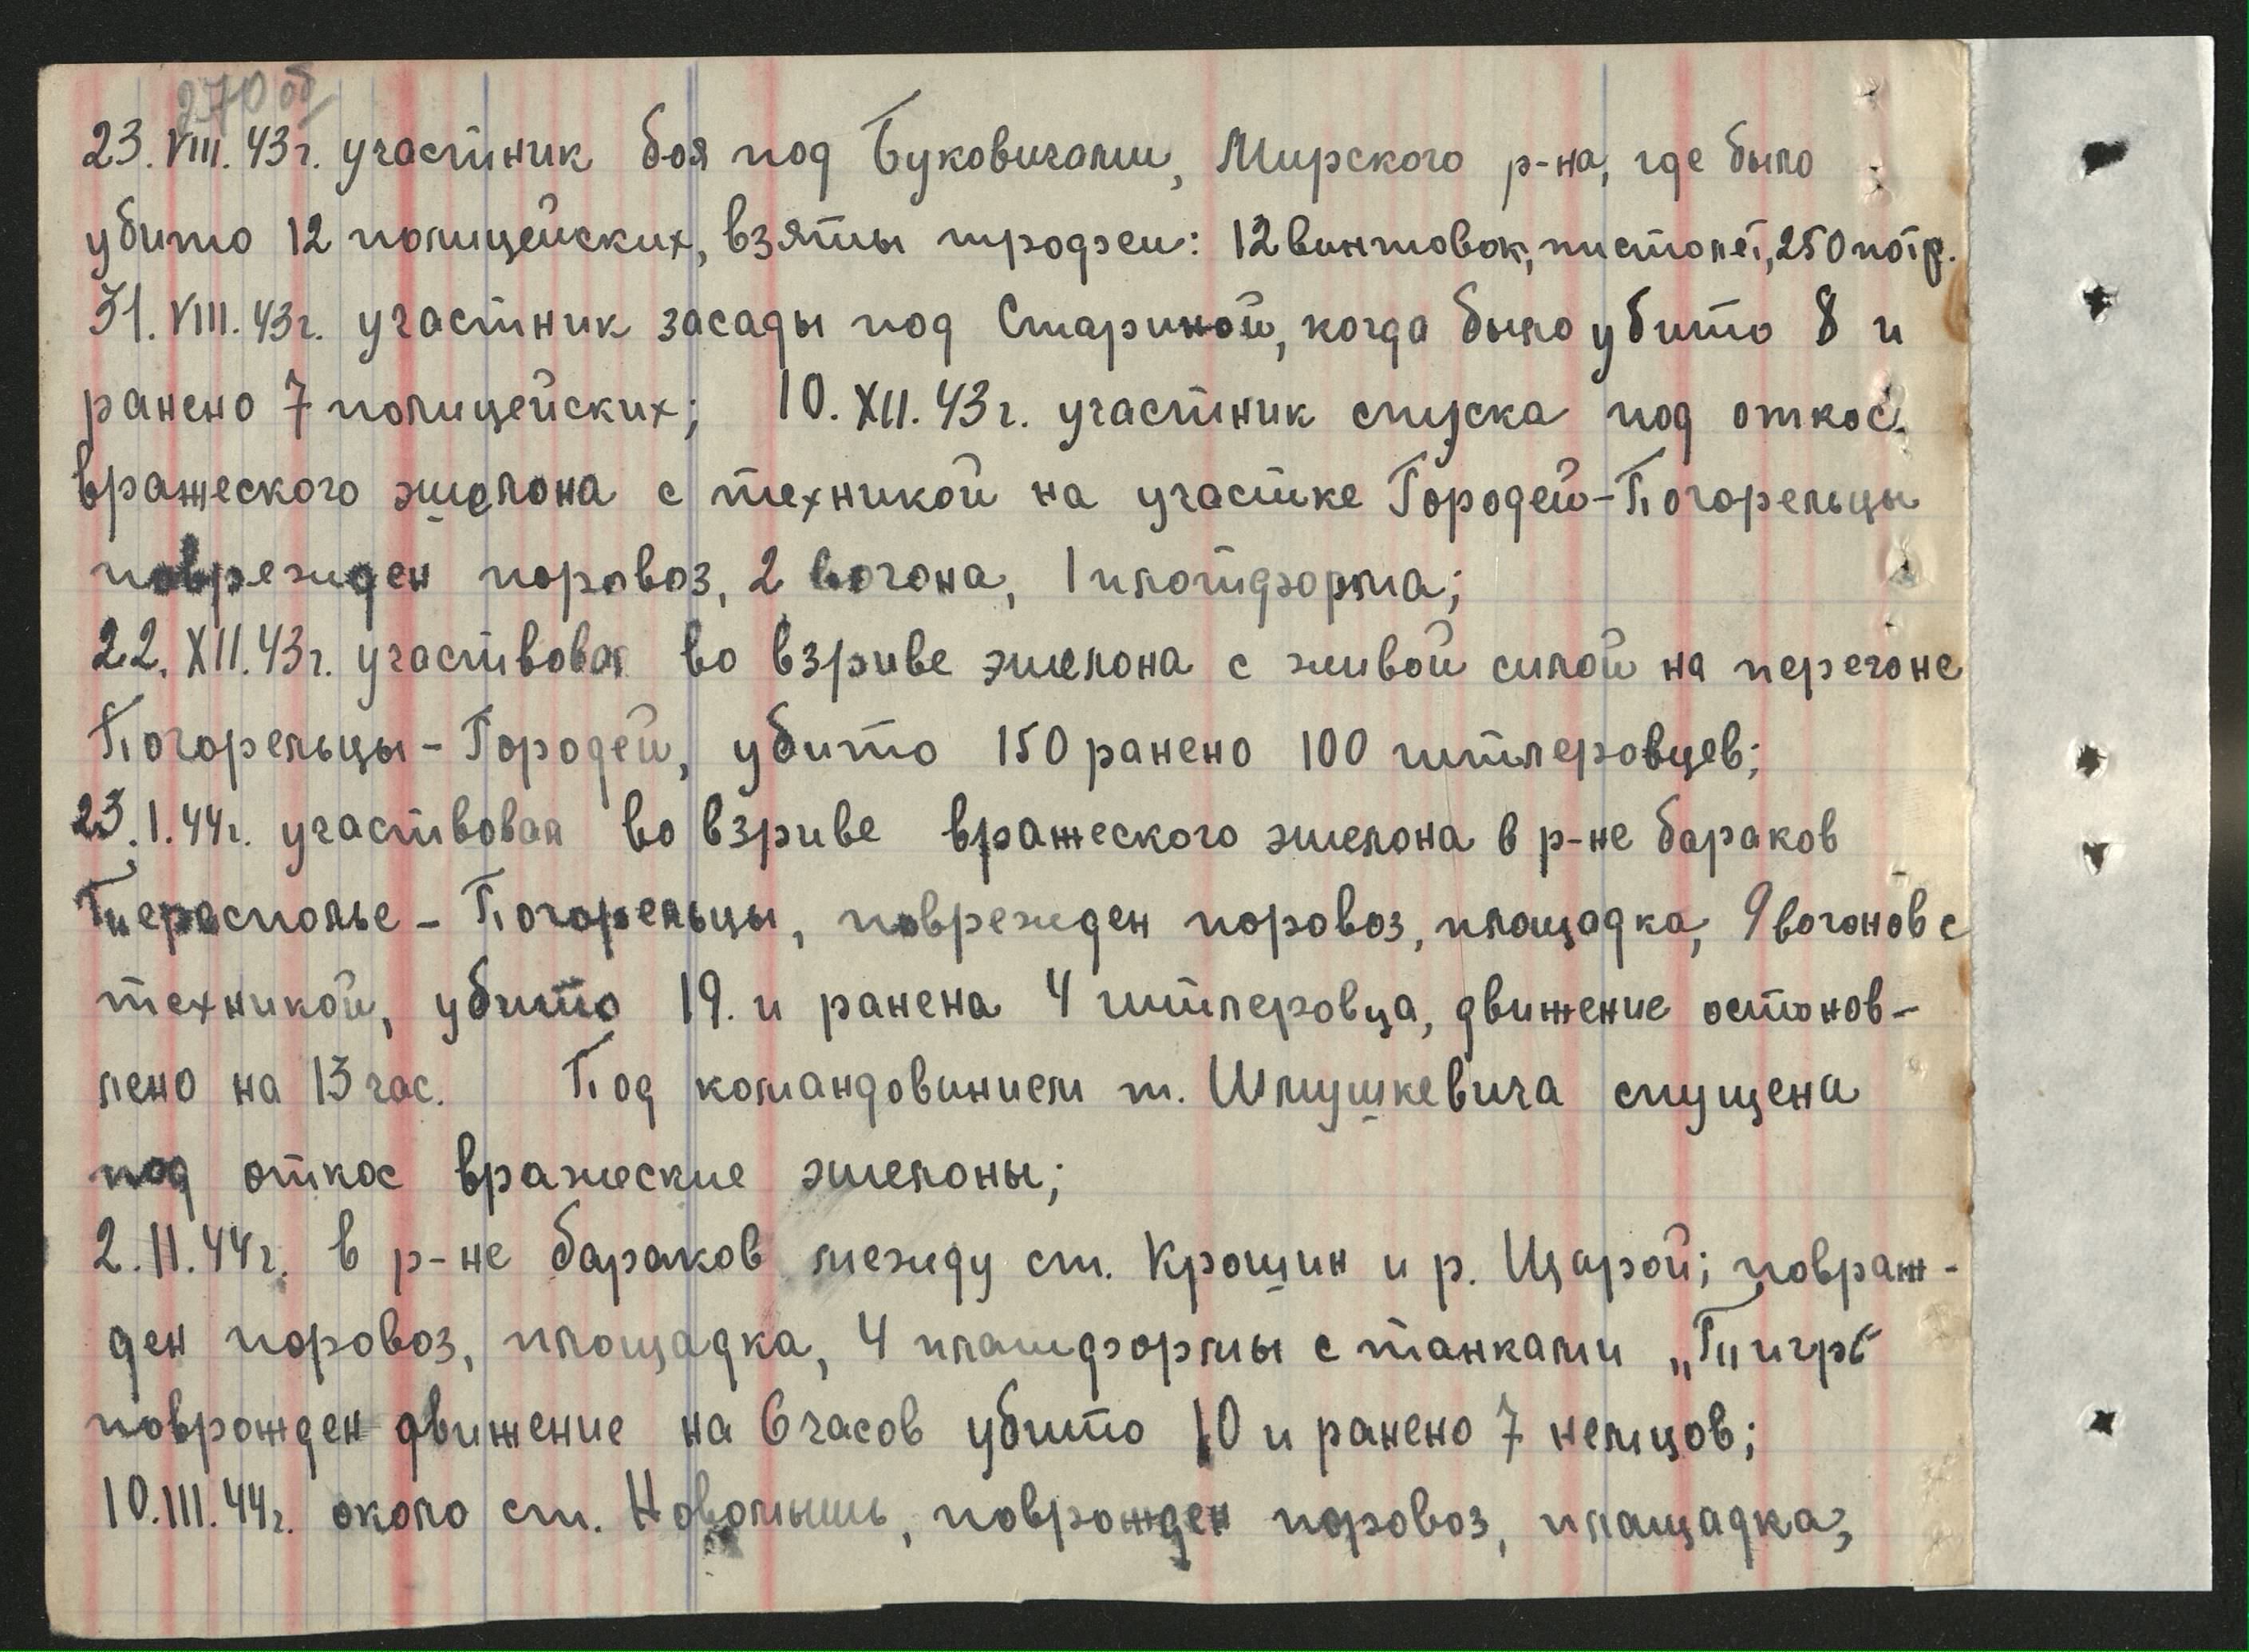 270 об
23.VIII.43г. участник боя под Буковичами, Мирского р-на, где было
убито 12 полицейских, взяты трофеи: 12 винтовок, пистолет, 250 патр.
31.VIII.43г. участник засады под Стариной, когда было убито 8 и
ранено 7 полицейских; 10.XII.43г. участник спуска под откос
вражеского эшелона с техникой на участке Городей-Погорельцы
поврежден паровоз, 2 вагона, 1 платформа;
22.XII.43г. участвовал во взриве эшелона с живой силой на перегоне
Погорельцы-Городей, убито 150 ранено 100 гитлеровцев;
23.1.44г. участвовал во взриве вражеского эшелона в р-не бараков
Тирасполье - Погорельцы, поврежден паровоз, площадка, 9 вагонов с
техникой, убито 19. и ранена 4 гитлеровца, движение останов-
лено на 13 час. Под командованием т. Шмушкевича спущена
под откос вражеские эшелоны;
2.II.44г. в р-не бараков между ст. Крошин и р. Щарой; повраж-
ден паровоз, площадка, 4 платформы с танками „Тигр"
поврожден движение на 6 часов убито 10 и ранено 7 немцов;
10.III.44г. около ст. Новомышь, поврожден паровоз, площадка,